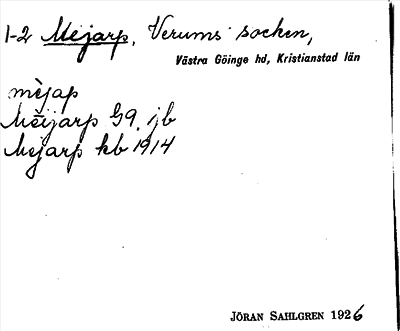 1-2 Mejarp, Verums socken,
Västra Göinge hd, Kristianstad län
mèjap
Meijarp 59. jb
Mejarp kb 1914
JÖRAN SAHLGREN 1926